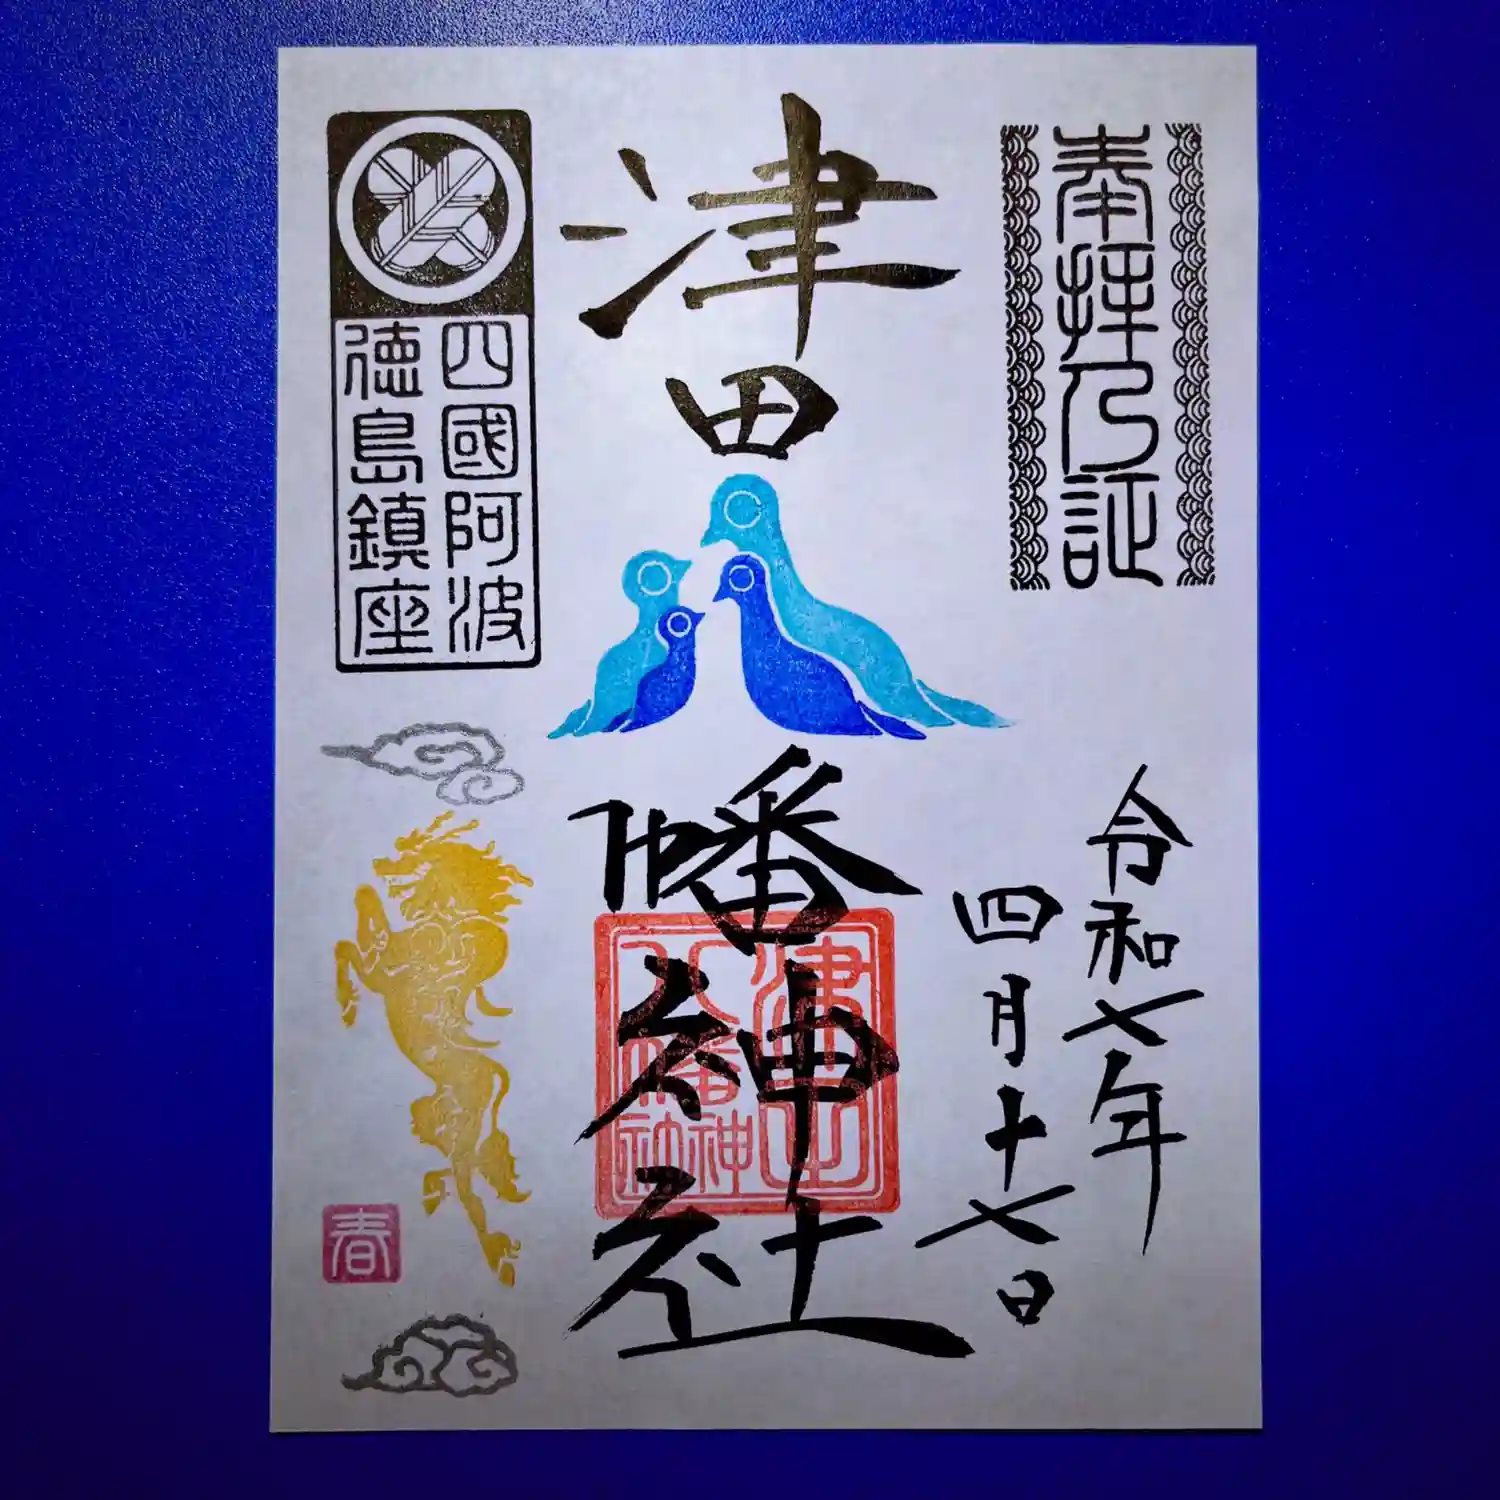 奉拝乃証
令和七年
四月十七日
津田八幡神社
津田
八幡神社
四國阿波
徳島鎮座
春